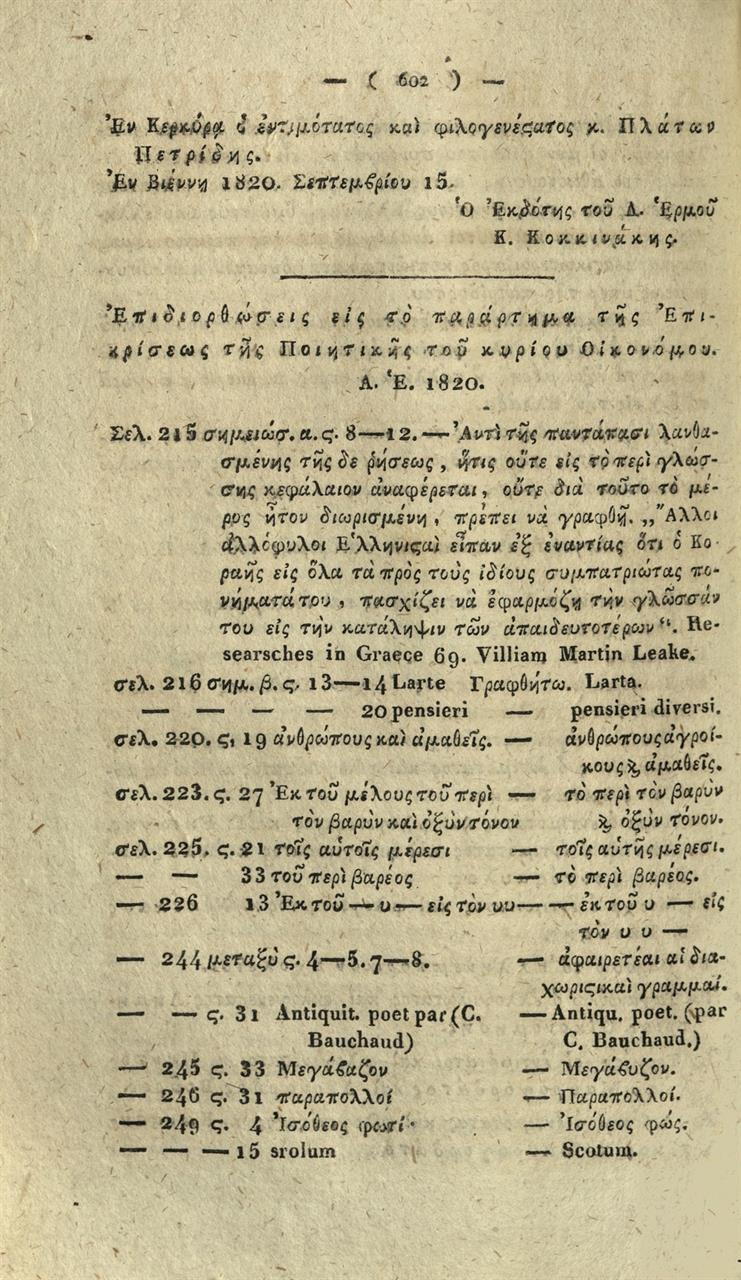 — ( 602 ) —
Ἐν Κερκύρᾳ ὁ ἐντιμότατος καὶ φιλογενέϛατος κ. Πλάτων
Πετρίδης.
Ἐν Βιέννῃ 1820. Σεπτεμβρίου 15.
Ὁ Ἐκδότης τοῦ Λ. Ἑρμοῦ
Κ. Κοκκινάκης.
Ἐπιδιορθώσεις εἰς τὸ παράρτημα τῆς Ἐπι-
κρίσεως τῆς Ποιητικῆς τοῦ κυρίου Οἰκονόμου.
Λ. Ἑ. 1820.
Σελ. 215 σημειώσ. α. ϛ. 8—12. — Ἀντὶ τῆς παντάπασι λανθα-
σμένης τῆς δε ῥήσεως, ἥτις οὔτε εἰς τὸ περὶ γλώσ-
σης κεφάλαιον ἀναφέρεται, οὔτε διὰ τοῦτο τὸ μέ-
ρος ἦτον διωρισμένη, πρέπει νὰ γραφθῇ. „Ἄλλοι
ἀλλόφυλοι Ἑλληνιϛαὶ εἶπαν ἐξ ἐναντίας ὅτι ὁ Κο-
ραῆς εἰς ὅλα τὰ πρὸς τοὺς ἰδίους συμπατριώτας πο-
νήματά του, πασχίζει νὰ ἐφαρμόζῃ τὴν γλῶσσάν
του εἰς τὴν κατάληψιν τῶν ἀπαιδευτοτέρων“. Re-
searsches in Graece 69. Villiam Martin Leake.
σελ. 216 σημ. β. ϛ. 13—14 Larte Γραφθήτω. Larta.
— — — — 20 pensieri — pensieri diversi.
σελ. 220. ϛ, 19 ἀνθρώπους καὶ ἀμαθεῖς. — ἀνθρώπους ἀγροί-
κους ϗ ἀμαθεῖς.
σελ. 223. ϛ. 27 Ἐκ τοῦ μέλους τοῦ περὶ — τὸ περὶ τὸν βαρὺν
τὸν βαρὺν καὶ ὀξὺν τόνον ϗ ὀξὺν τόνον.
σελ. 225. ϛ. 21 τοῖς αὐτοῖς μέρεσι — τοῖς αὐτῆς μέρεσι.
— — 33 τοῦ περὶ βαρέος — τὸ περὶ βαρέος.
— 226 13 Ἐκ τοῦ — υ — εἰς τὸν υυ — — ἐκ τοῦ υ — εἰς
τὸν υ υ —
— 244 μεταξὺ ϛ. 4—5. 7—8. — ἀφαιρετέαι αἱ δια-
χωριϛικαὶ γραμμαί.
— — ϛ. 31 Antiquit. poet par (C. — Antiqu. poet. (par
Bauchaud) C. Bauchaud.)
— 245 ϛ. 33 Μεγάβαζον — Μεγάβυζον.
— 246 ϛ. 31 παραπολλοί — Παραπολλοί.
— 249 ϛ. 4 Ἰσόθεος φωτί· — Ἰσόθεος φώς.
— — — 15 srolum — Scotum.